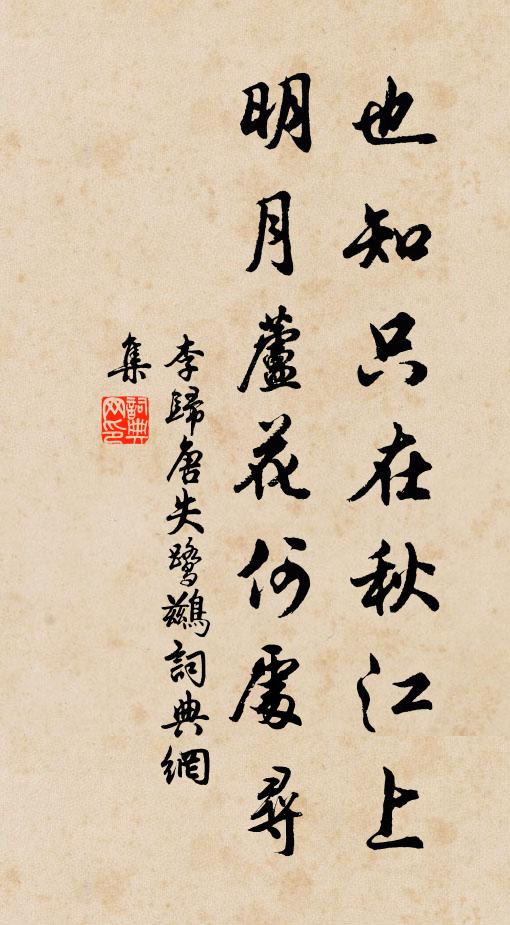 也知只在秋江上
明月蘆花何處尋
李歸唐失鷺鷀詞典網
集
詞典
网印